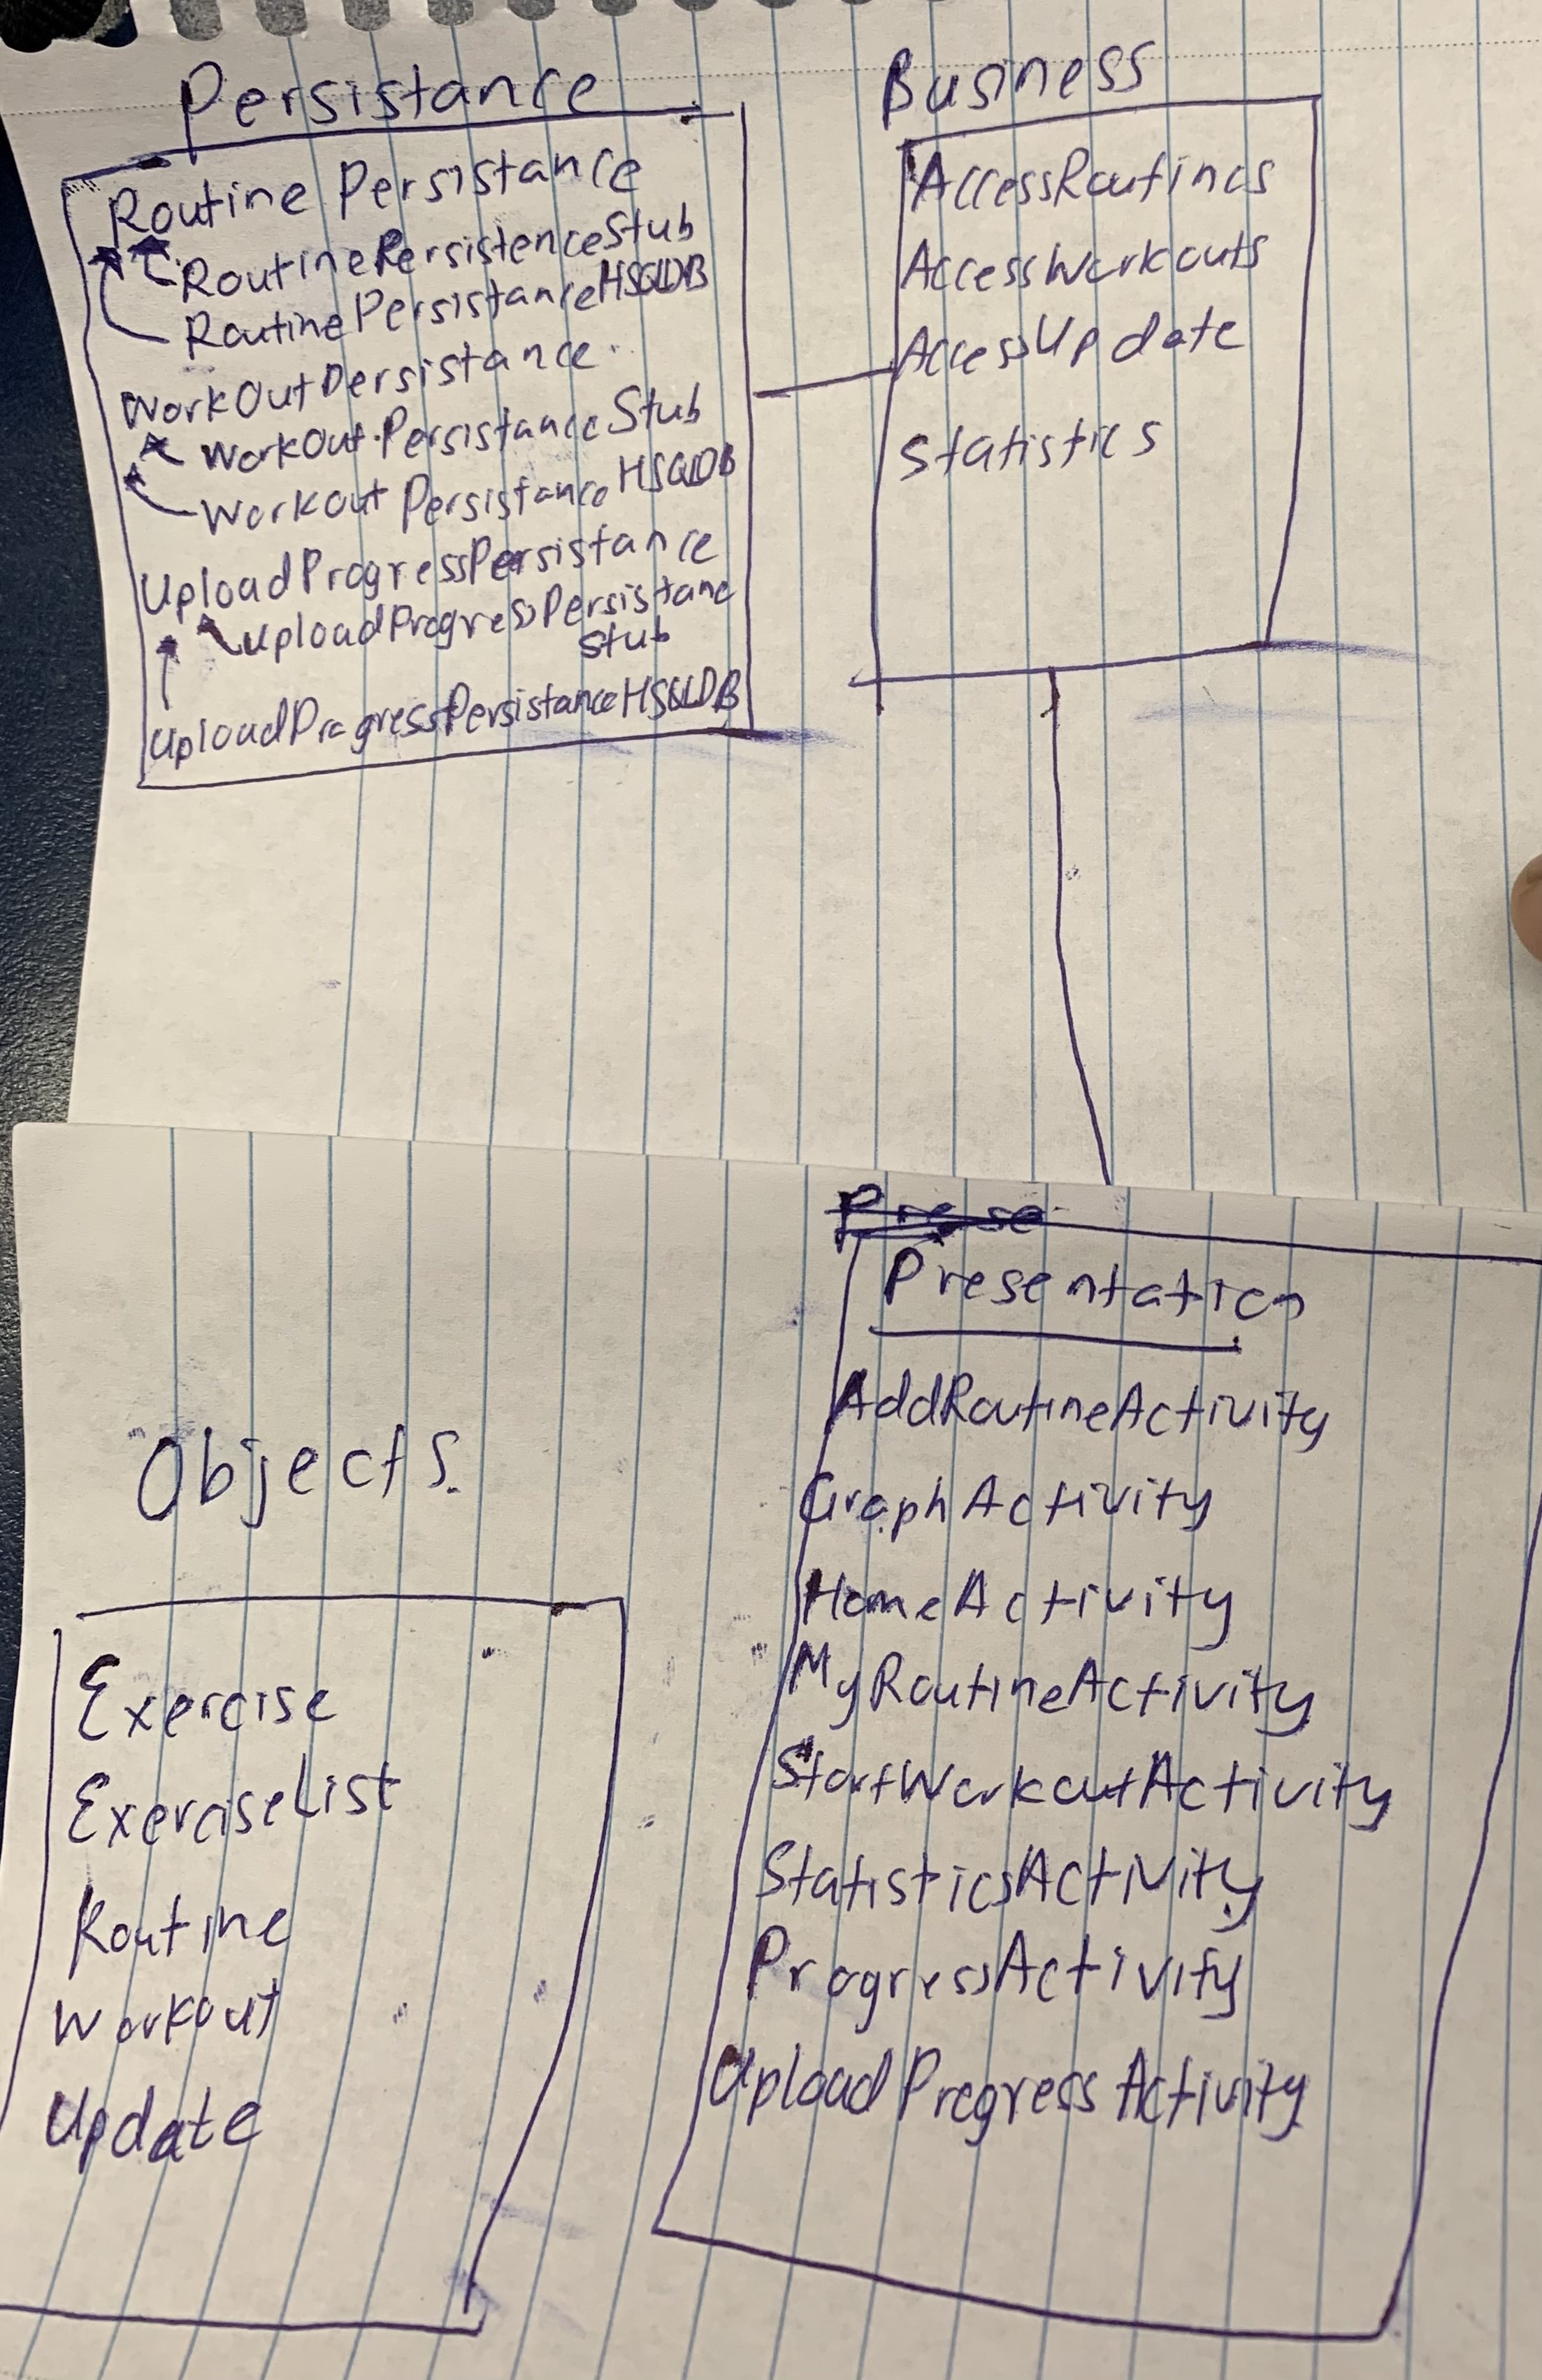 Persistance
Routine Persistance
RoutinePersistenceStub
RoutinePersistanceHSQLDB
WorkOutPersistance
WorkOut PersistanceStub
Workout Persistance HSQLDB
UploadProgressPersistance
UploadProgressPersistanc
Stub
UploadProgressPersistanceHSQLDB
Business
AccessRoutines
AccessWorkouts
AccessUpdate
Statistics
Objects.
Exercise
ExerciseList
Routine
Workout
Update
Prese
Presentation
AddRoutineActivity
GraphActivity
HomeActivity
MyRoutineActivity
StartWorkoutActivity
StatisticsActivity
ProgressActivity
UploadProgressActivity